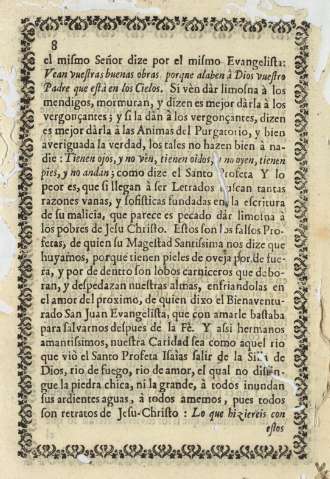 8
el mismo Señor dize por el mismo Evangelista:
Vean vuestras buenas obras porque alaben à Dios vuestro
Padre que està en los Cielos. Si vèn dàr limosna à los
mendigos, mormuran, y dizen es mejor dàrla à los
vergonçantes; y si la dàn à los vergonçantes, dizen
es mejor dàrla à las Animas del Purgatorio, y bien
averiguada la verdad, los tales no hazen bien à na-
die: Tienen ojos, y no vèn, tienen oidos, y no oyen, tienen
pies, y no andan; como dize el Santo Profeta Y lo
peor es, que si llegan à ser Letrados buscan tantas
razones vanas, y sofisticas fundadas en la escritura
de su malicia, que parece es pecado dàr limosna à
los pobres de Jesu Christo. Estos son los falsos Pro-
fetas, de quien su Magestad Santissima nos dize que
huyamos, porque tienen pieles de oveja por de fue-
ra, y por de dentro son lobos carniceros que debo-
ran, y despedazan nuestras almas, enfriandolas en
el amor del proximo, de quien dixo el Bienaventu-
rado San Juan Evangelista, que con amarle bastaba
para salvarnos despues de la Fè. Y assi hermanos
amantissimos, nuestra Caridad sea como aquel rio
que viò el Santo Profeta Isaìas salir de la Silla de
Dios, rio de fuego, rio de amor, el qual no distin-
gue la piedra chica, ni la grande, à todos inundan
sus ardientes aguas, à todos amemos, pues todos
son retratos de Jesu-Christo: Lo que hiziereis con
estos